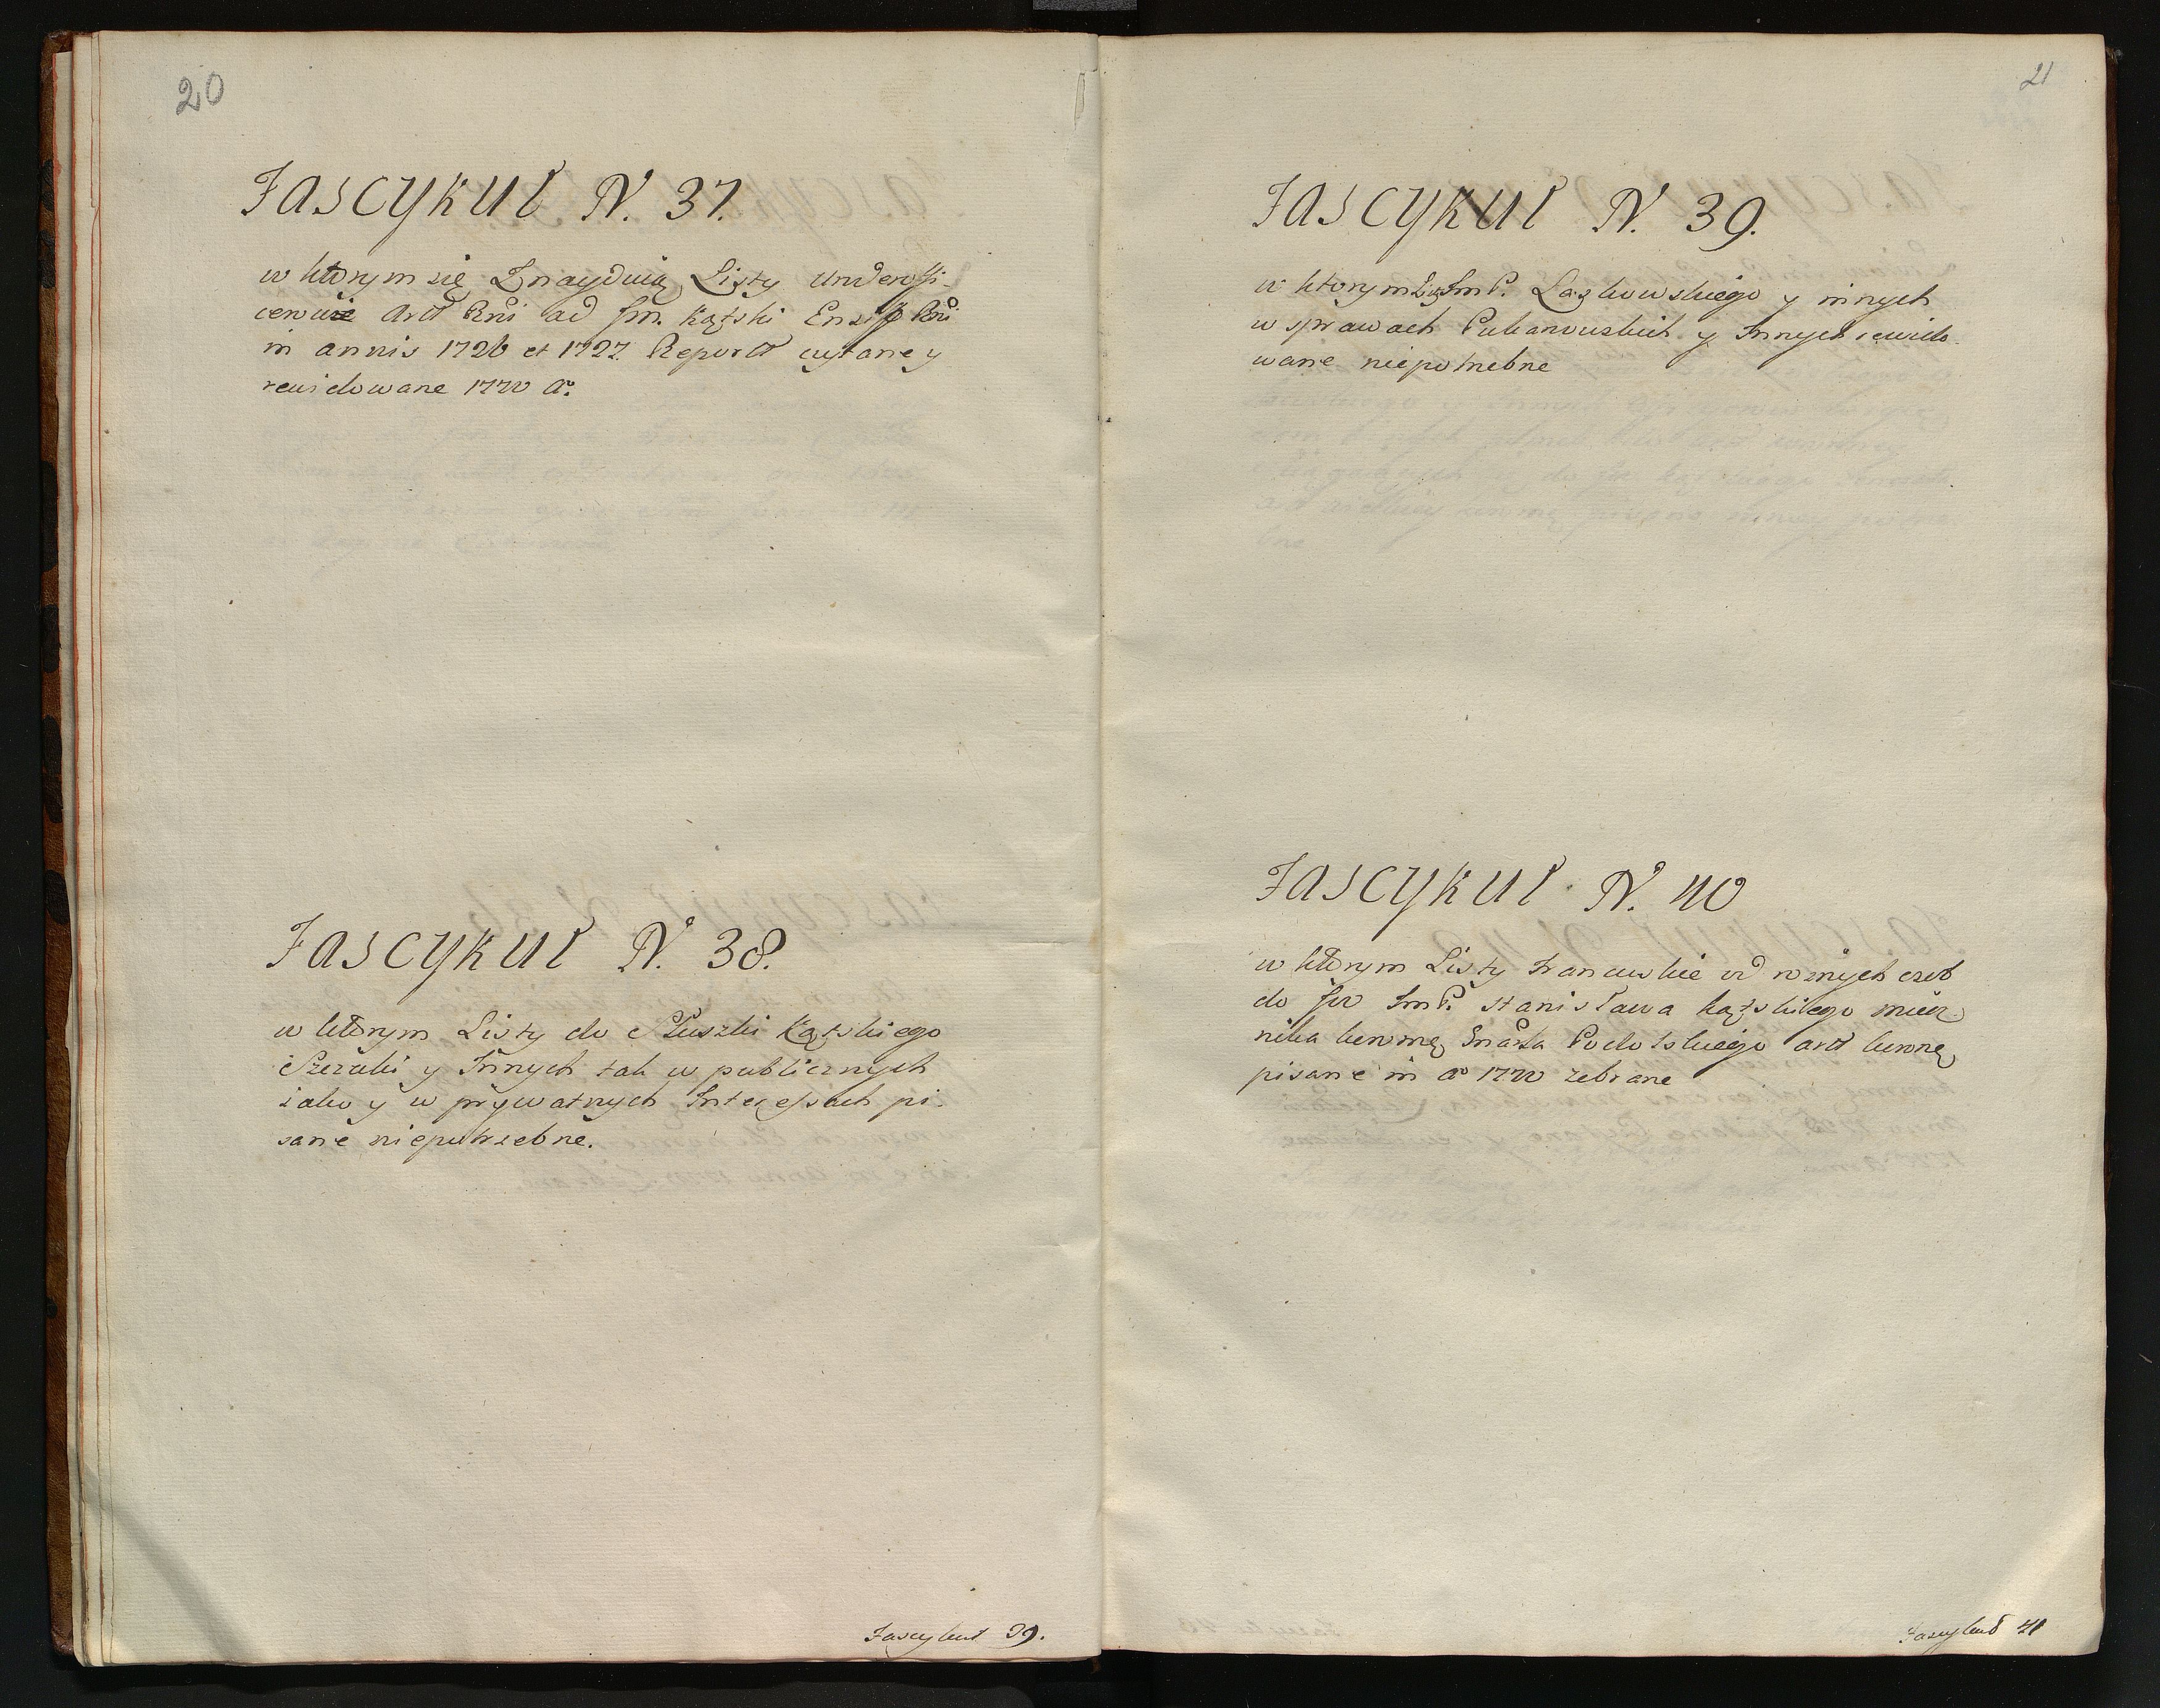 20
Fascykuł N. 37.
w ktorym się Znayduią Listy Underoffi-
Artt Rni ad Jm. Kątski Rni
in annis 1726 et 1727. Reportt czytane y
rewidowane 1770 Ao.
Fascykuł N. 38.
w ktorym Listy do Słuszki Kątskiego
Szczuki y Innych tak w publicznych
iako y w prywatnych Interessach pi-
sane niepotrzebne.
Fascykuł 39.
21
Fascykuł N. 39.
w ktorym Lis. ImP. Laskowskiego y innych
w sprawach y Innych rewido-
wane niepotrzebne
Fascykuł N. 40
w ktorym Listy Francuskie od roznych osob
do JW ImP. Stanisława Kątskiego miecz-
nika koronne Podolskiego artt koronne
pisane in Ao 1770 zebrane
Fascykuł 41